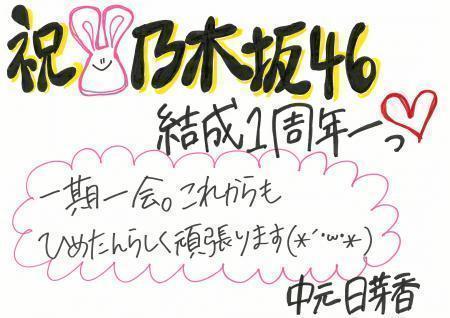 祝 乃木坂46
結成1周年一っ
一期一会。これからも
ひめたんらしく頑張ります(*´･ω･*)
中元日芽香